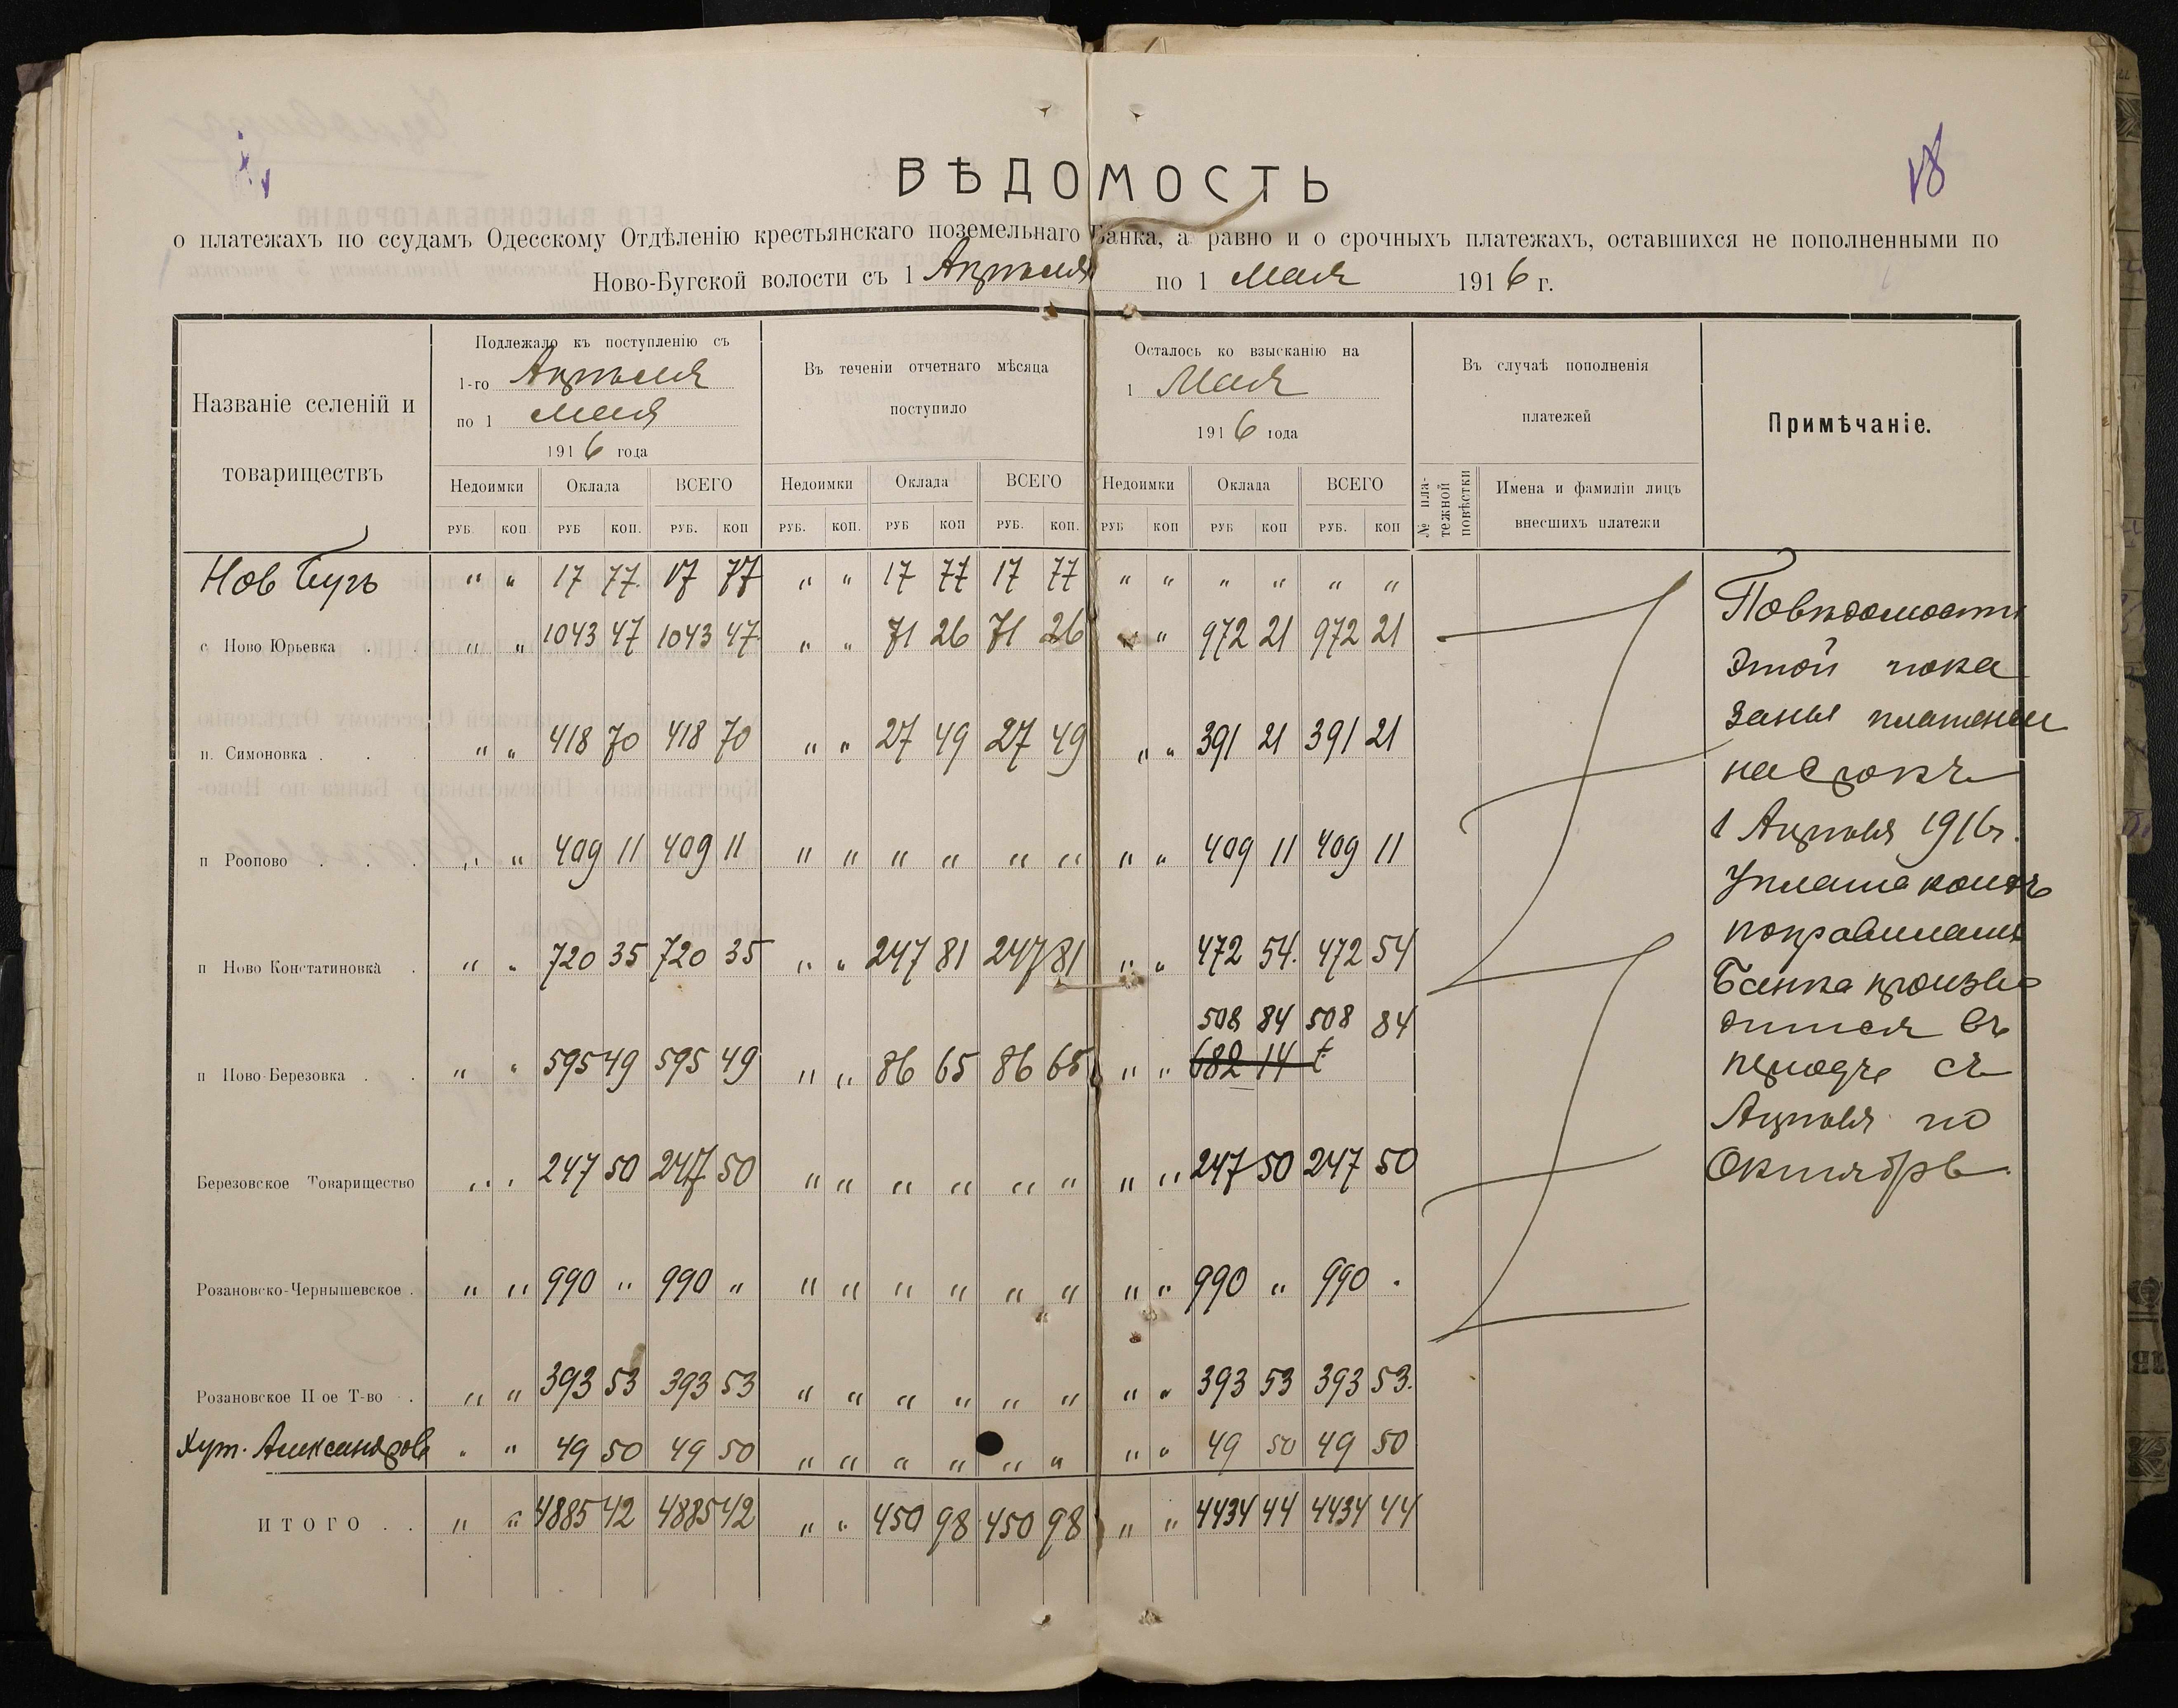 18
ВѢДОМОСТЬ
о платежахъ по ссудамъ Одесскому Отдѣленію крестьянскаго поземельнаго Банка, а равно и о срочныхъ платежахъ, оставшихся не пополненными по
Ново-Бугской волости съ 1 Апрѣля по 1 Мая 1916 г.
Названіе селеній и
товариществъ
Подлежало къ поступленію съ
1-го Апрѣля
по 1 Мая
1916 года
Въ теченіи отчетнаго мѣсяца
поступило
Осталось ко взысканію на
1 Мая
1916 года
Въ случаѣ пополненія
платежей
Примѣчаніе.
Недоимки Оклада ВСЕГО Недоимки Оклада ВСЕГО Недоимки Оклада ВСЕГО
№ пла-
тежной
повѣстки
Имена и фамиліи лицъ
внесшихъ платежи
РУБ. КОП РУБ КОП. РУБ. КОП РУБ. КОП. РУБ КОП РУБ. КОП. РУБ КОП РУБ КОП РУБ. КОП
Нов Бугъ " " 17 77 17 77 " " 17 77 17 77 " " " " " "
с Ново Юрьевка . . " " 1043 47 1043 47 " " 71 26 71 26 " " 972 21 972 21
п. Симоновка . . . " " 418 70 418 70 " " 27 49 27 49 " " 391 21 391 21
п Роопово . . . " " 409 11 409 11 " " " " " " " " 409 11 409 11
п Ново Констатиновка . " " 720 35 720 35 " " 247 81 247 81 " " 472 54. 472 54
508 84 508 84
п Ново-Березовка . . " " 595 49 595 49 " " 86 65 86 65 " " 682 14
Березовское Товарищество " " 247 50 247 50 " " " " " " " " 247 50 247 50
Розановско-Чернышевское . " " 990 " 990 " " " " " " " " " 990 " 990 "
Розановское II ое Т-во . " " 393 53 393 53 " " " " " " " " 393 53 393 53.
Хут. Александров " " 49 50 49 50 " " " " " " " " 49 50 49 50
ИТОГО . . " " 4885 42 4885 42 " " 450 98 450 98 " " 4434 44 4434 44
Повѣдомости
этой пока
заны платежи
на Срокъ
1 Апрѣля 1916 г.
Уплата коихъ
по правиламъ
Банка произво
дится въ
періодъ съ
Апрѣля по
Октябрь.